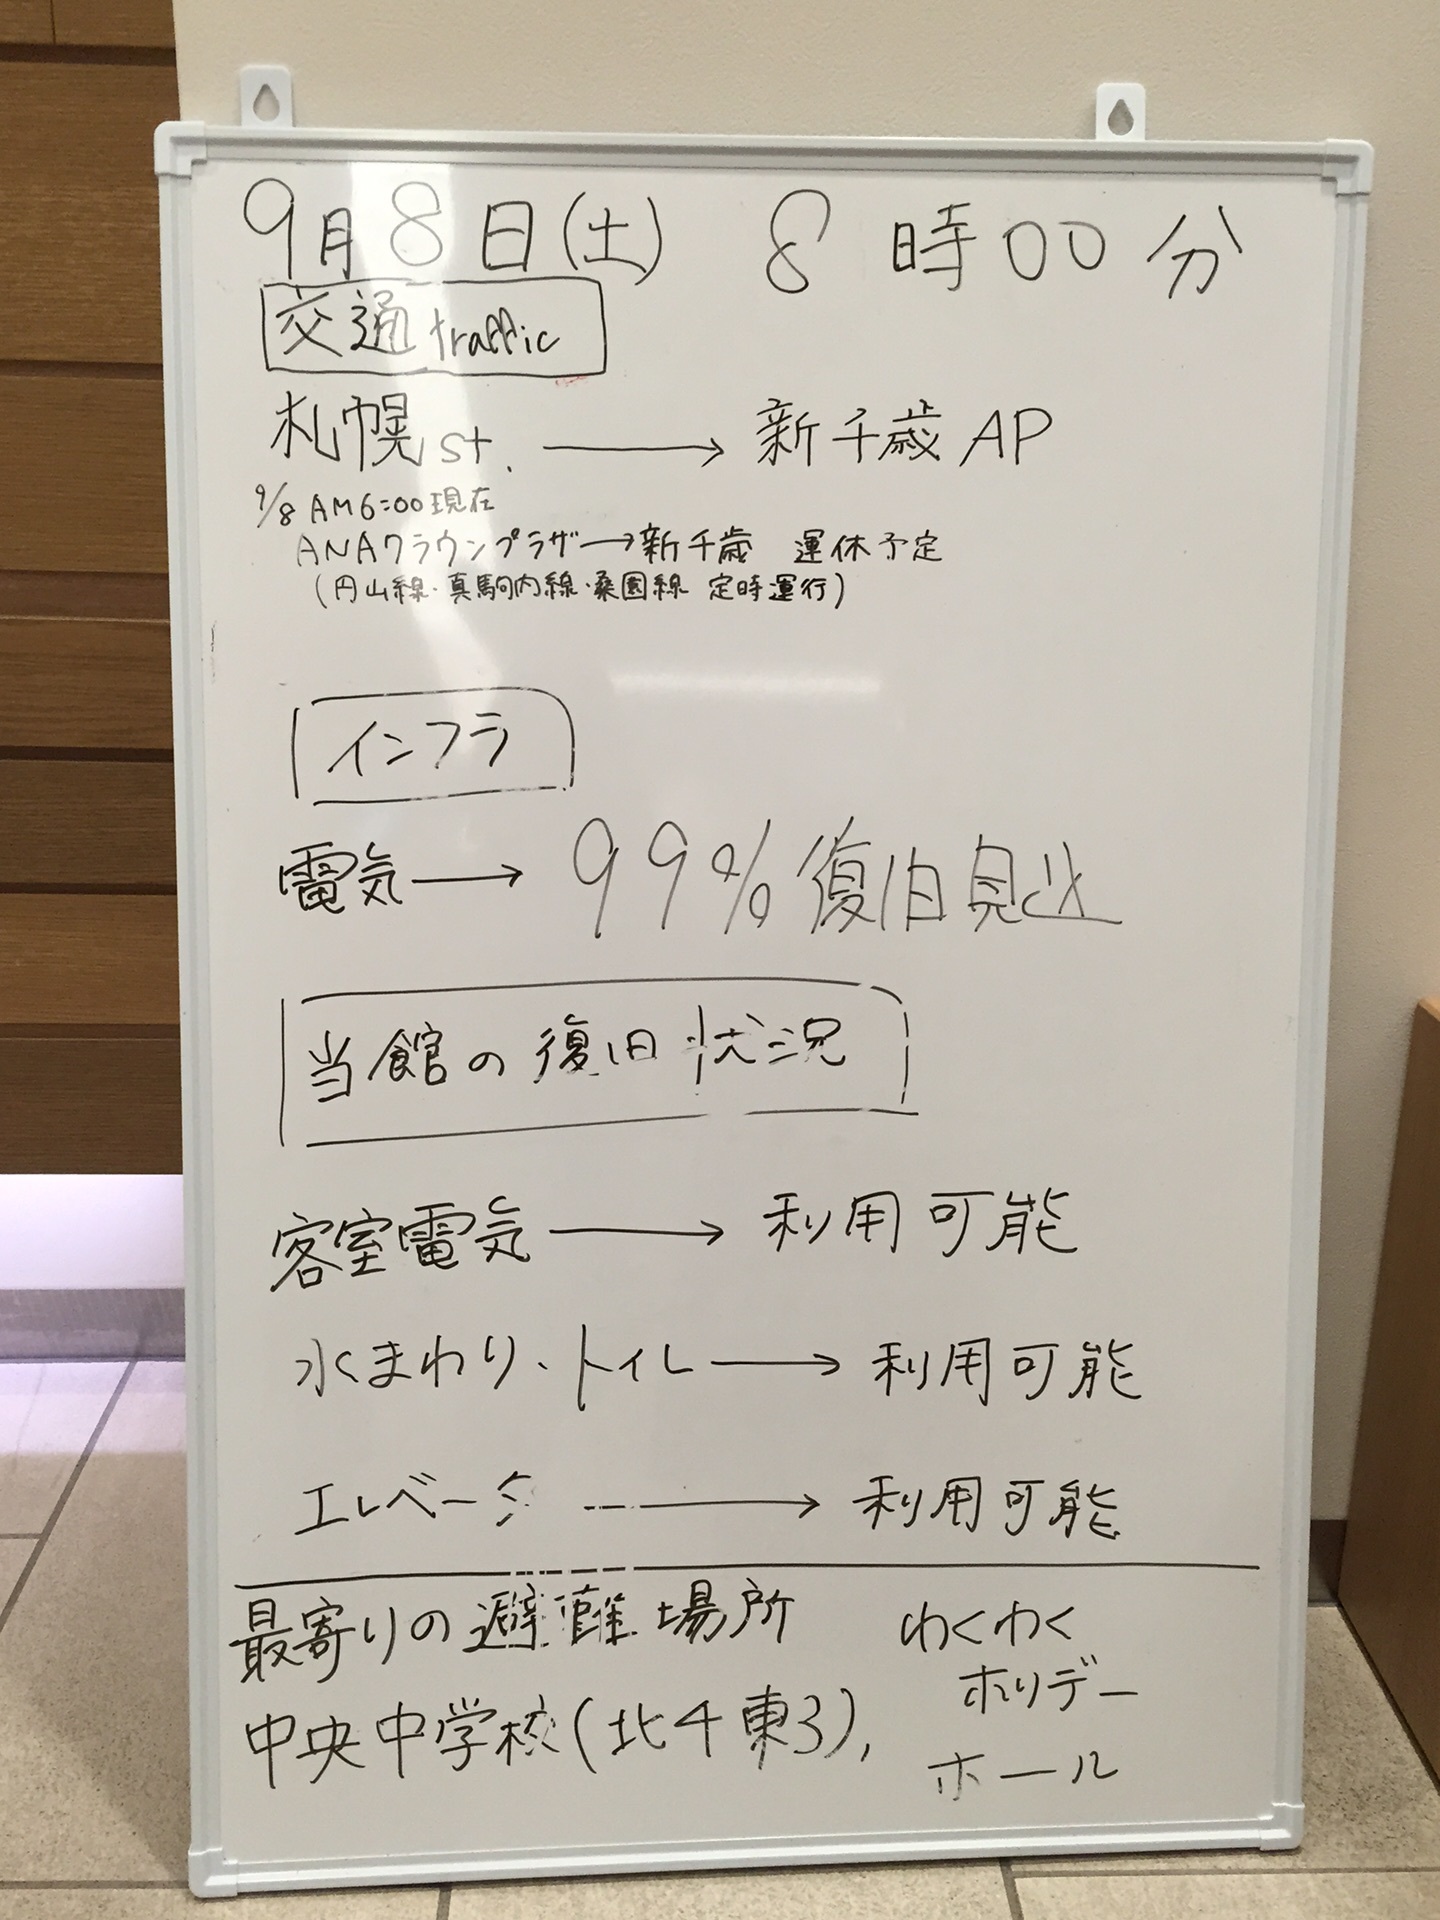 9月8日(土) 8時00分
交通 traffic
札幌 st. → 新千歳 AP
9/8 AM6:00現在
ANAクラウンプラザ→新千歳 運休予定
(円山線・真駒内線・桑園線 定時運行)
インフラ
電気→ 99%復旧見込
当館の復旧状況
客室電気→利用可能
水まわり・トイレ→利用可能
エレベータ→利用可能
最寄りの避難場所
中央中学校(北4東3),
わくわく
ホリデー
ホール